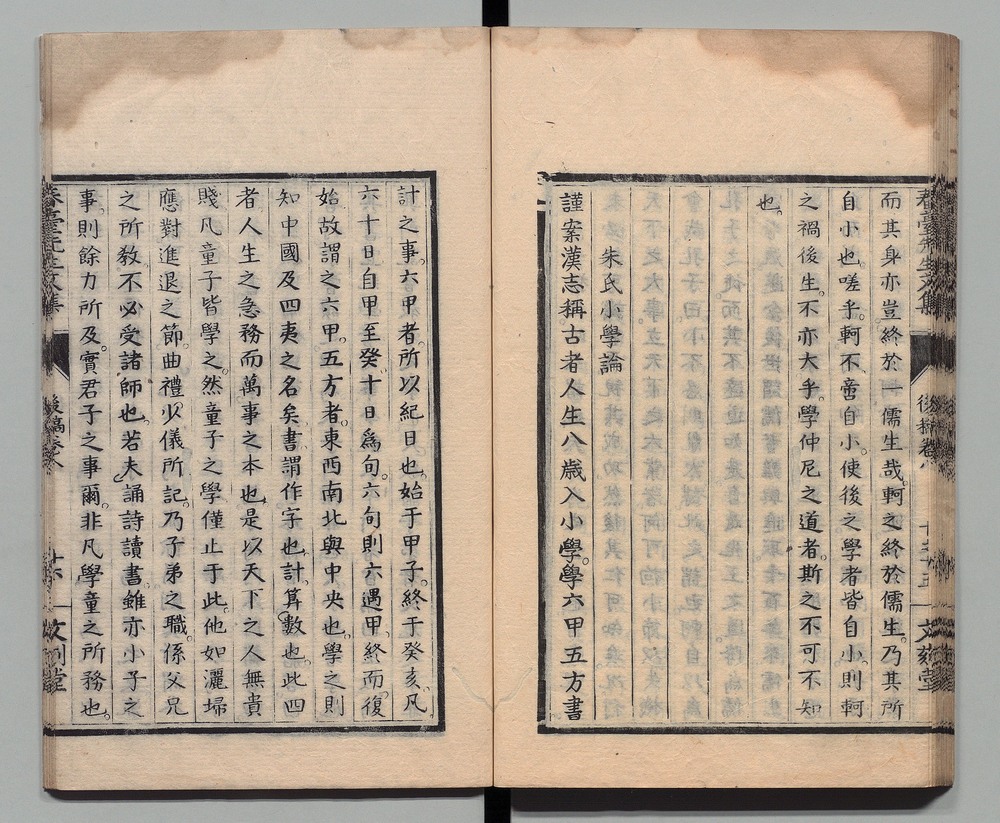 而其身亦豈終於一儒生哉。軻之終於儒生。乃其所
自小也。嗟乎。軻不啻自小。使後之學者皆自小。則軻
之禍後生。不亦大乎。學仲尼之道者。斯之不可不知
也。
朱氏小學論
謹案漢志稱古者人生八歲入小學。學六甲五方書
計之事。六甲者。所以紀日也。始于甲子。終于癸亥。凡
六十日自甲至癸。十日爲旬。六旬則六遇甲。終而復
始。故謂之六甲。五方者。東西南北與中央也。學之則
知中國及四夷之名矣。書謂作字也。計算數也。此四
者人生之急務而萬事之本也。是以天下之人無貴
賤凡童子皆學之。然童子之學僅止于此。他如灑埽
應對進退之節。曲禮少儀所記。乃子弟之職。係父兄
之所敎。不必受諸師也。若夫誦詩讀書。雖亦小子之
事。則餘力所及。實君子之事爾。非凡學童之所務也。